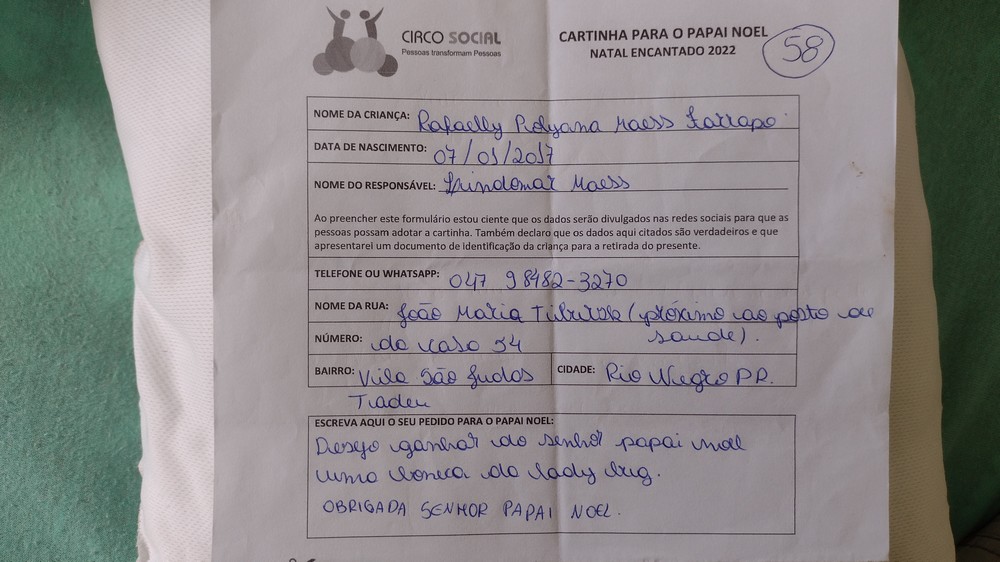 CIRCO SOCIAL
Pessoas transformam Pessoas
CARTINHA PARA O PAPAI NOEL
NATAL ENCANTADO 2022
58
NOME DA CRIANÇA: Rafaelly Polyana Maess Farrapo
DATA DE NASCIMENTO: 07/01/2017
NOME DO RESPONSÁVEL: Lrindomar Maess
Ao preencher este formulário estou ciente que os dados serão divulgados nas redes sociais para que as
pessoas possam adotar a cartinha. Também declaro que os dados aqui citados são verdadeiros e que
apresentarei um documento de identificação da criança para a retirada do presente.
TELEFONE OU WHATSAPP: 047 98482-3270
NOME DA RUA: João Maria (próximo ao posto de
saude).
NÚMERO: da casa 54
BAIRRO: Vila São Judas
Tadeu
CIDADE: Rio Negro PR.
ESCREVA AQUI O SEU PEDIDO PARA O PAPAI NOEL:
Desejo ganhar do senhor papai noel
uma boneca da lady bug.
OBRIGADA SENHOR PAPAI NOEL.